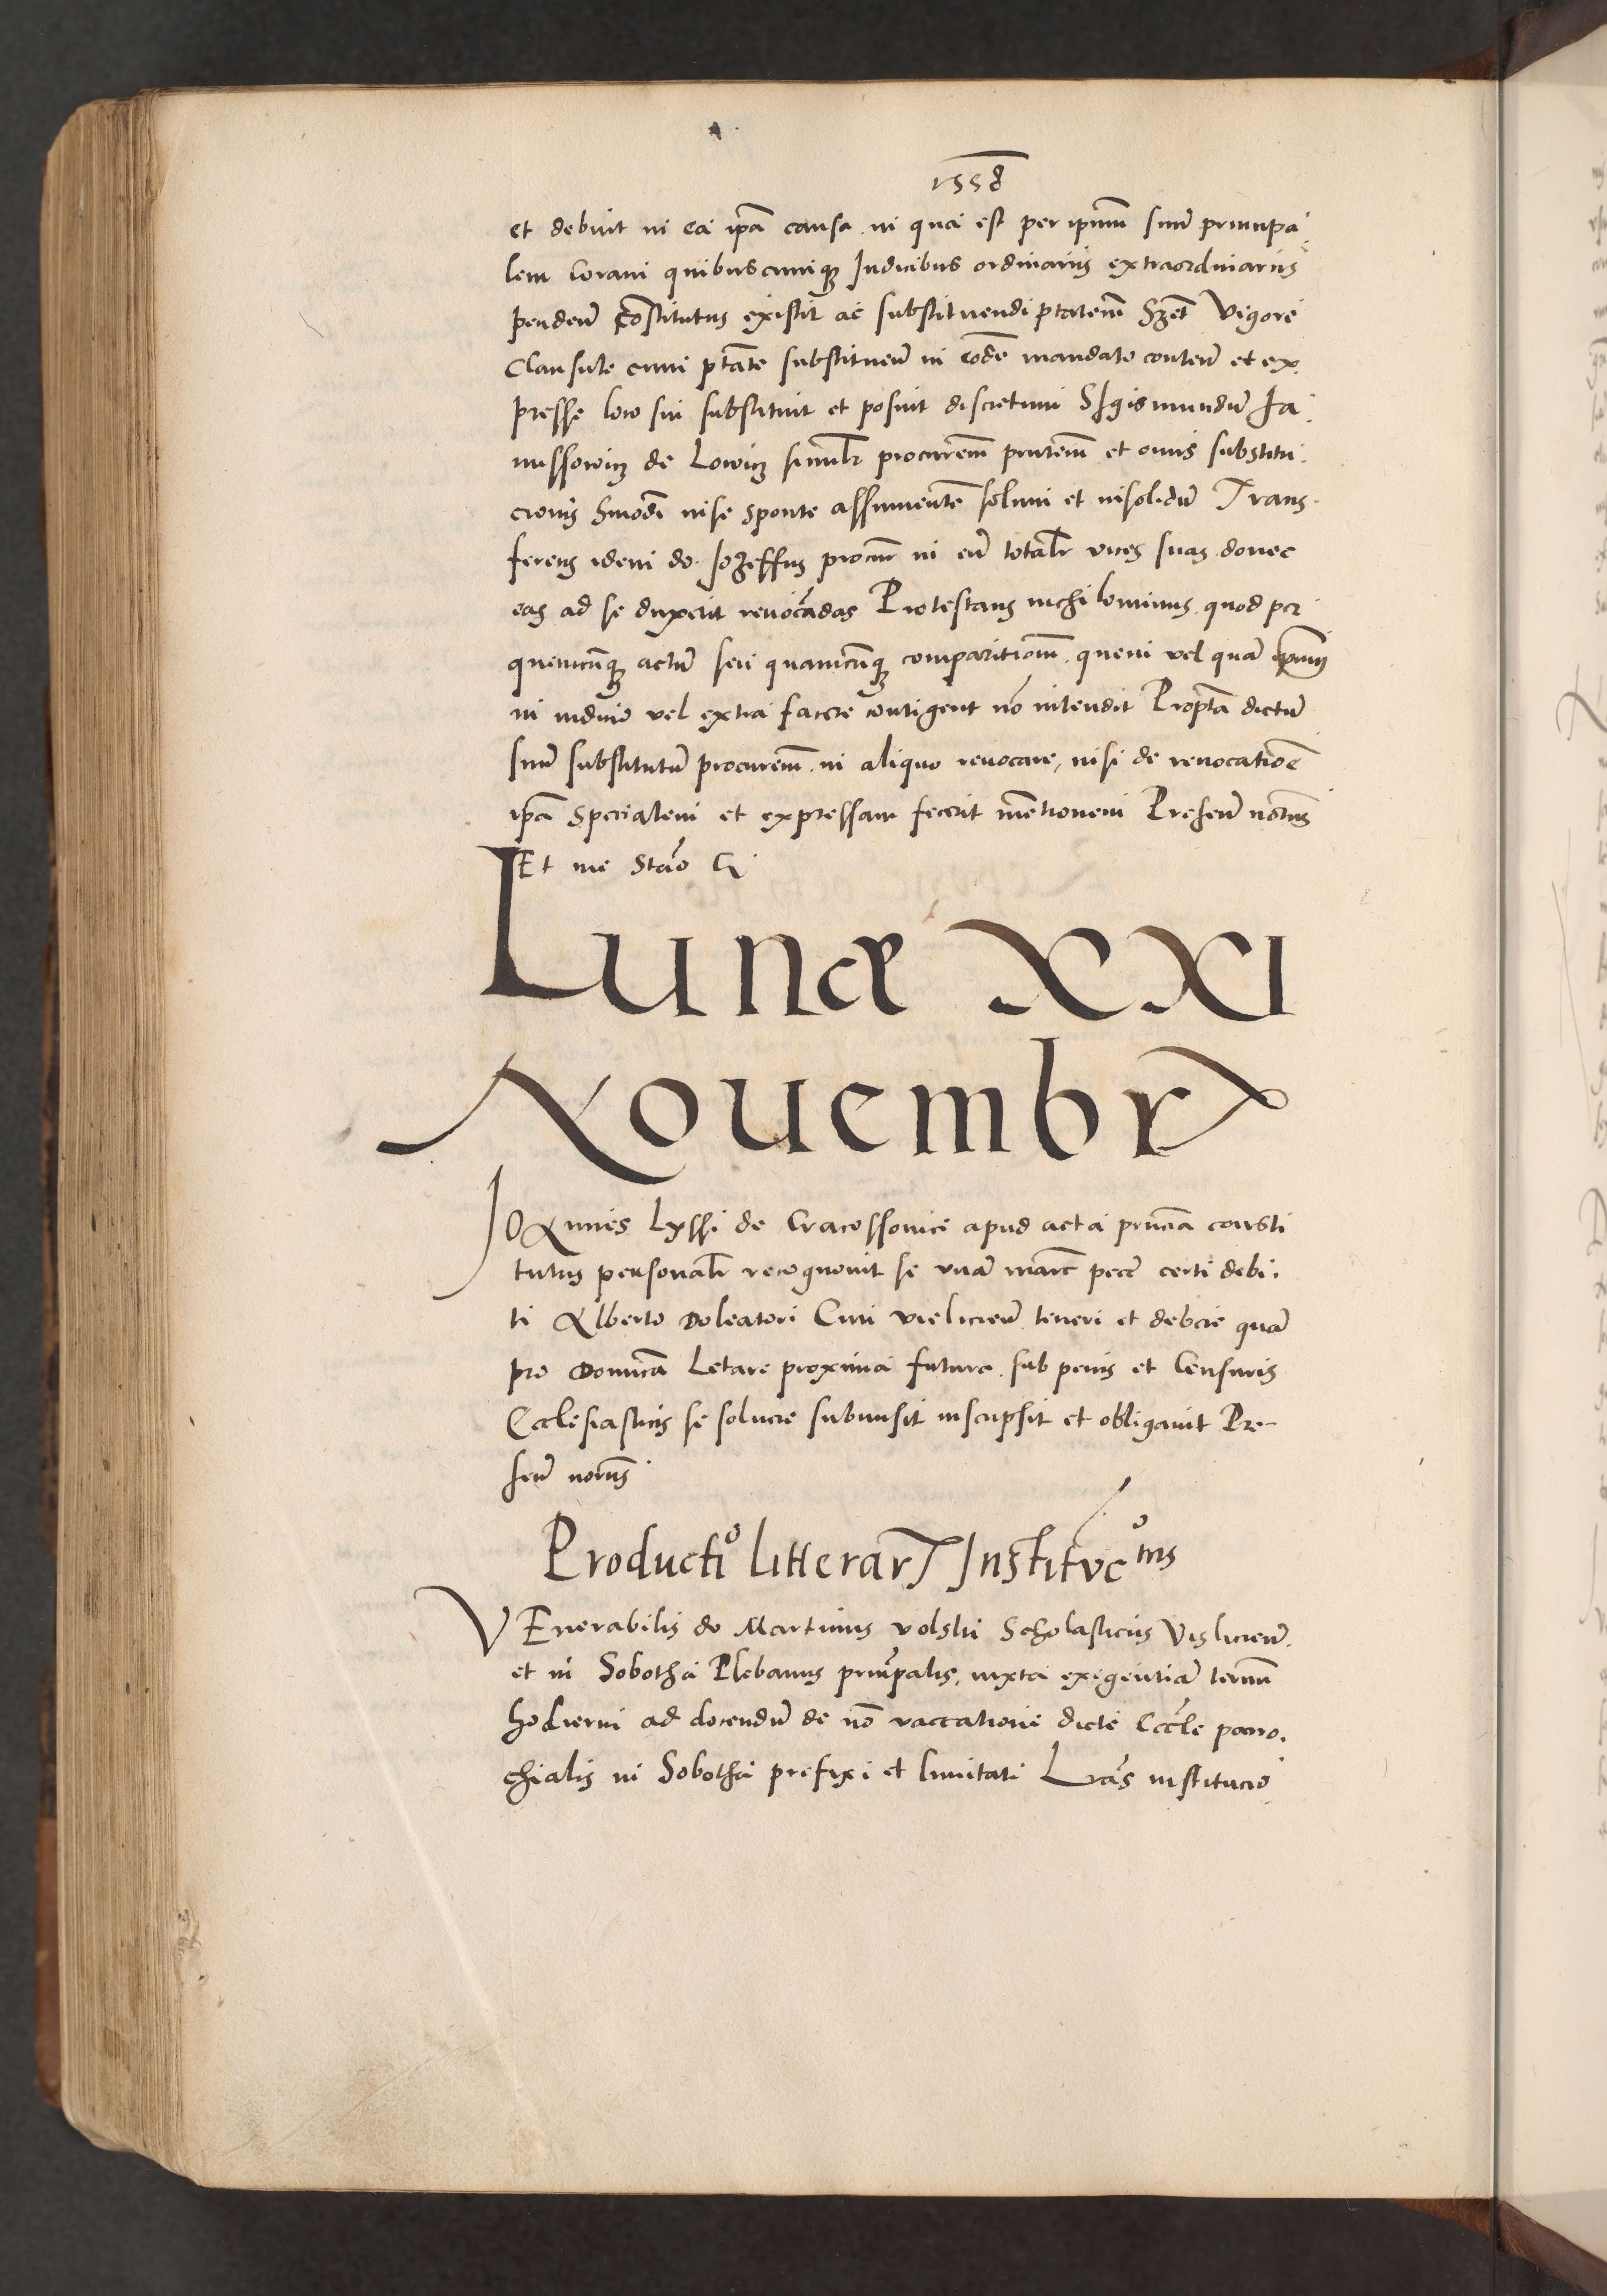 1558
et debuit in ea ip̄a causa in qua est per ipsum suū principa
lem Coram quibuscunq; Iudicibus ordinariis extraordinariis
penden̄ cōstitutus existit ac substituendi ptatem̄ Vigore
Clausule cum ptāte substituen̄ in eodē mandato conten̄ et ex
presse loco sui substituit et posuit discretum SIgismundū Ia
nussowicz de Lowicz similr procurem̄ pn̄tem̄ et onus substitu
cionis hmōdi in se sponte assumentē solum et insolidū Trans
ferens idem do Iozeffus procur̄ in eū totalr vices suas donec
eas ad se duxerit reuocādas Protestans nichilominus quod per
quemcūq; actū seu quamcūq; comparitionē quem vel quā
in iudicio vel extra facere contigerit nō intendit dictū
suū substitutū procurem̄ in aliquo reuocare, nisi de reuocatione
ip̄a specialem et expressam fecerit mētionem Presen̄
Et me Stāo
Lunæ XXI
Nouembr
IOAnnes Lyssi de Cracossowice apud acta consti
tutus personalr recognouit se vnā marc̄ pecc̄ certi debi
ti Alberto Doleatori Ciui vielicien̄ teneri et debere quā
pro Domica Letare proxima futura sub penis et Censuris
Ecclesiasticis se soluere submisit inscripsit et obligauit Pre-
sen̄
Productio litterar Institucōnis
VEnerabilis do Martinus volski Scholasticus Vislicien̄
et in Sobotha Plebanus prin̄palis, iuxta exigentiā termi
hodierni ad docendū de nō vaccatione dicte Eccle paro
chialis in Sobotha prefixi et limitati Lrās institucio